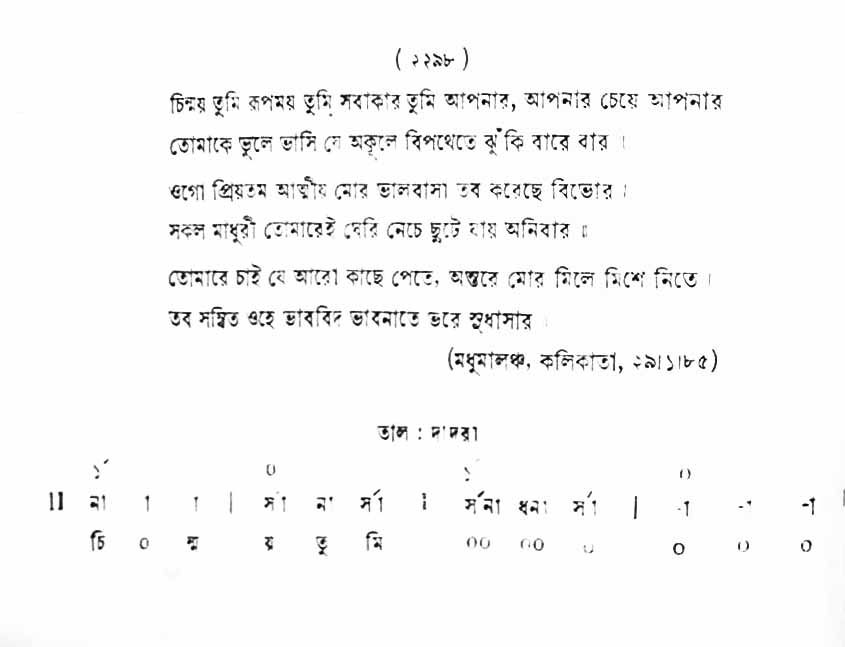 ( ২২৯৮ )
চিন্ময় তুমি রূপময় তুমি সবাকার তুমি আপনার, আপনার চেয়ে আপনার
তোমাকে ভুলে ভাসি যে অকূলে বিপথেতে ঝুঁকি বারে বার ।
ওগো প্রিয়তম আত্মীয় মোর ভালবাসা তব করেছে বিভোর ।
সকল মাধুরী তোমারেই ঘেরি নেচে ছুটে যায় অনিবার ॥
তোমারে চাই যে আরো কাছে পেতে, অন্তরে মোর মিলে মিশে নিতে ।
তব সম্বিত ওহে ভাববিদ ভাবনাতে ভরে সুধাসার ।
(মধুমালঞ্চ, কলিকাতা, ২৯।১।৮৫)
তাল : দাদরা
১´ ০ ১´ ০
II না া া | র্সা না র্সা I র্সনা ধনা র্সা | -া -া -া |
চি ০ ন্ম য় তু মি ০০ ০০ ০ ০ ০ ০